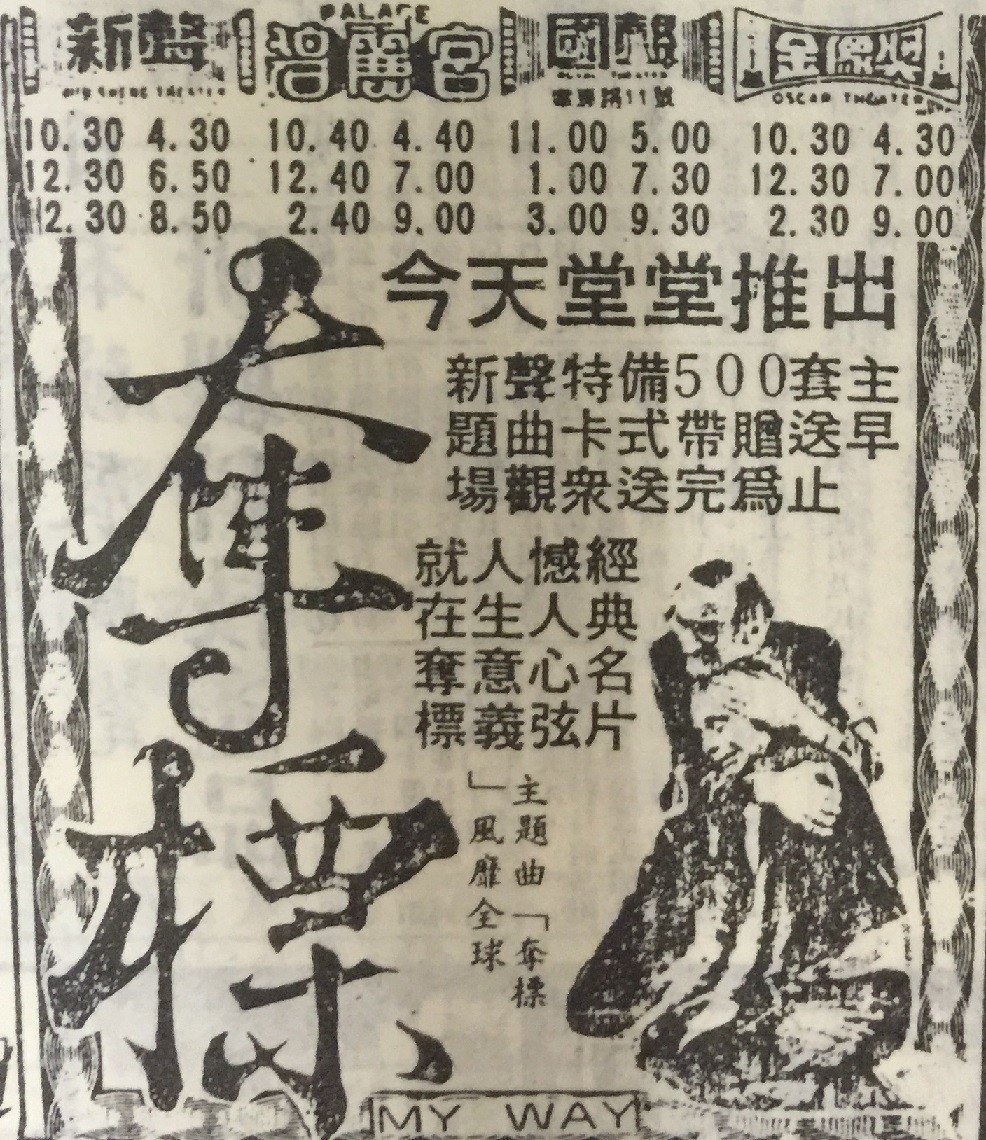 新聲
PALACE
碧麗宮
國聲
金像獎
OSCAR THEATER
10.30 4.30
12.30 6.50
2.30 8.50
10.40 4.40
12.40 7.00
2.40 9.00
11.00 5.00
1.00 7.30
3.00 9.30
10.30 4.30
12.30 7.00
2.30 9.00
今天堂堂推出
新聲特備500套主
題曲卡式帶贈送早
場觀衆送完爲止
經典名片
憾人心弦
人生意義
就在奪標
主題曲「奪標
」風靡全球
奪標
MY WAY